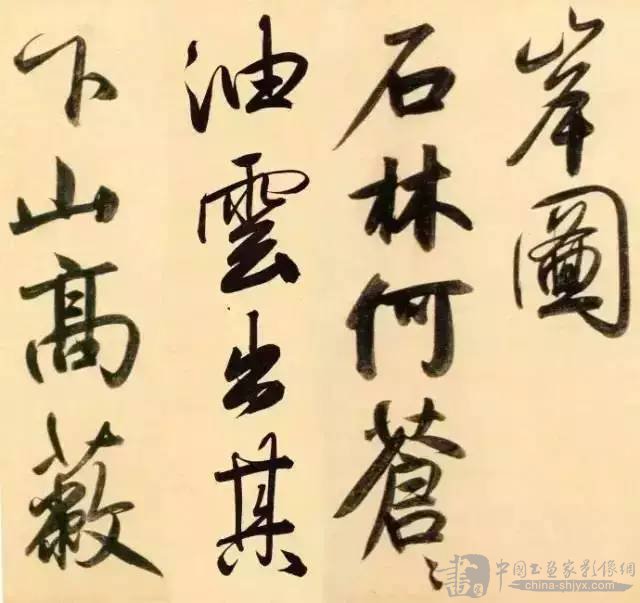 岸圖
石林何蒼〻
油雲出其
下山高蔽
書
中國书画家影像網
china-shjyx.com